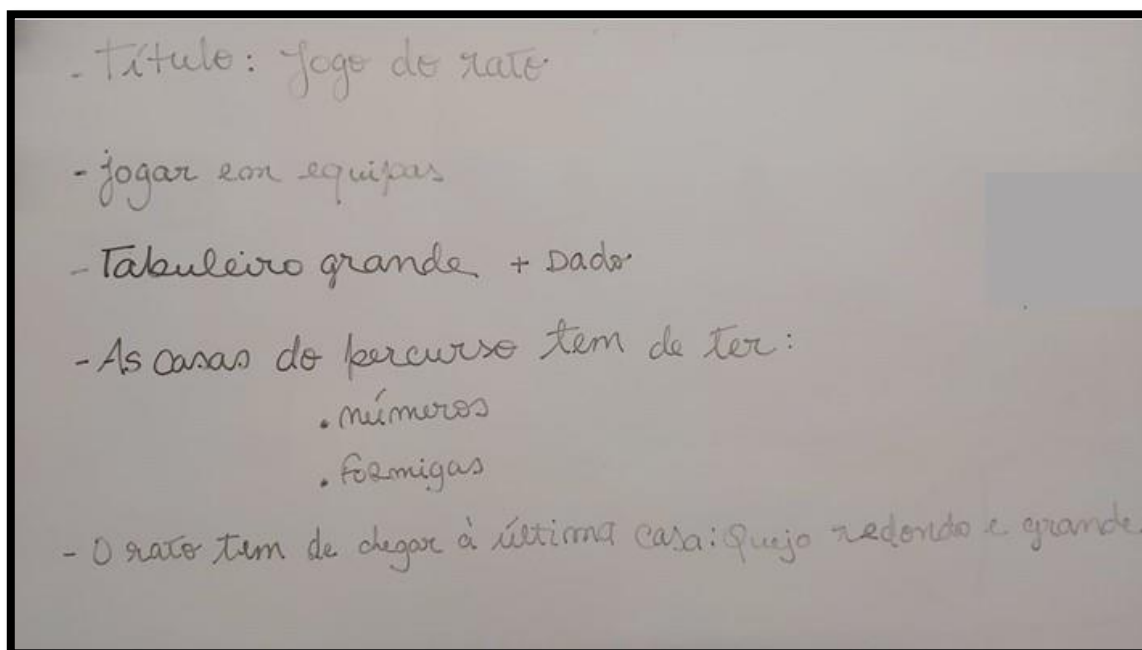 - Título: Jogo do rato
- jogar em equipas
- Tabuleiro grande + Dado
- As casas do percurso tem de ter:
. números
. formigas
- O rato tem de chegar à última casa: Queijo redondo e grande